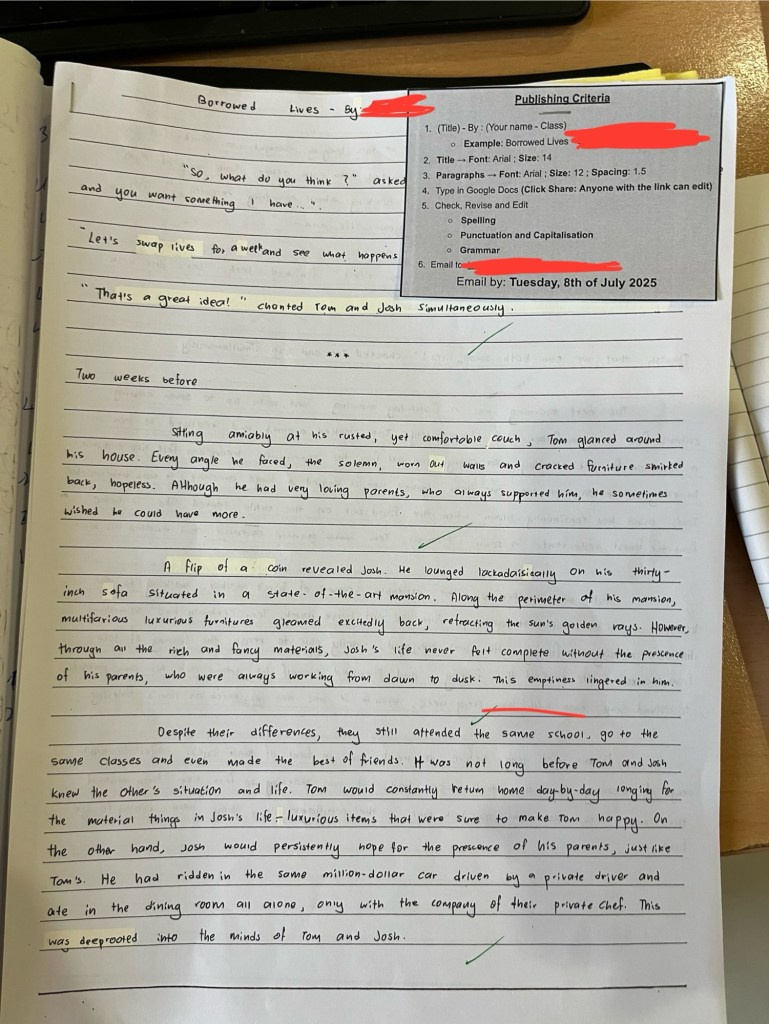 Borrowed Lives - By
Publishing Criteria
1. (Title) - By : (Your name - Class)
○ Example: Borrowed Lives
2. Title → Font: Arial ; Size: 14
3. Paragraphs → Font: Arial ; Size: 12 ; Spacing: 1.5
4. Type in Google Docs (Click Share: Anyone with the link can edit)
5. Check, Revise and Edit
○ Spelling
○ Punctuation and Capitalisation
○ Grammar
6. Email to
Email by: Tuesday, 8th of July 2025
"So, what do you think ?" asked
and you want something I have...".
"Let's swap lives for a week and see what happens
"That's a great idea!" chanted Tom and Josh simultaneously.
***
Two weeks before
Sitting amiably at his rusted, yet comfortable couch, Tom glanced around
his house. Every angle he faced, the solemn, worn out walls and cracked furniture smirked
back, hopeless. Although he had very loving parents, who always supported him, he sometimes
wished he could have more.
A flip of a coin revealed Josh. He lounged lackadaisically on his thirty-
inch sofa situated in a state-of-the-art mansion. Along the perimeter of his mansion,
multifarious luxurious furnitures gleamed excitedly back, refracting the sun's golden rays. However,
through all the rich and fancy materials, Josh's life never felt complete without the prescence
of his parents, who were always working from dawn to dusk. This emptiness lingered in him.
Despite their differences, they still attended the same school, go to the
same classes and even made the best of friends. It was not long before Tom and Josh
knew the other's situation and life. Tom would constantly return home day-by-day longing for
the material things in Josh's life - luxurious items that were sure to make Tom happy. On
the other hand, Josh would persistently hope for the prescence of his parents, just like
Tom's. He had ridden in the same million-dollar car driven by a private driver and
ate in the dining room all alone, only with the company of their private chef. This
was deeprooted into the minds of Tom and Josh.